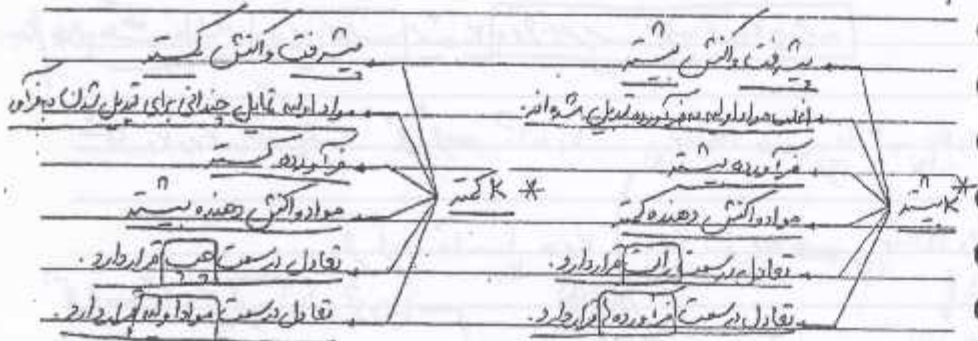 * K بیشتر
پیشرفت واکنش بیشتر
اغلب مواد اولیه به فرآورده تبدیل شده‌اند.
فرآورده بیشتر
مواد واکنش دهنده کمتر
تعادل در سمت راست قرار دارد.
تعادل در سمت فرآورده‌ها قرار دارد.
* K کمتر
پیشرفت واکنش کمتر
مواد اولیه تمایل چندانی برای تبدیل شدن به فرآورده
فرآورده کمتر
مواد واکنش دهنده بیشتر
تعادل در سمت چپ قرار دارد.
تعادل در سمت مواد اولیه قرار دارد.